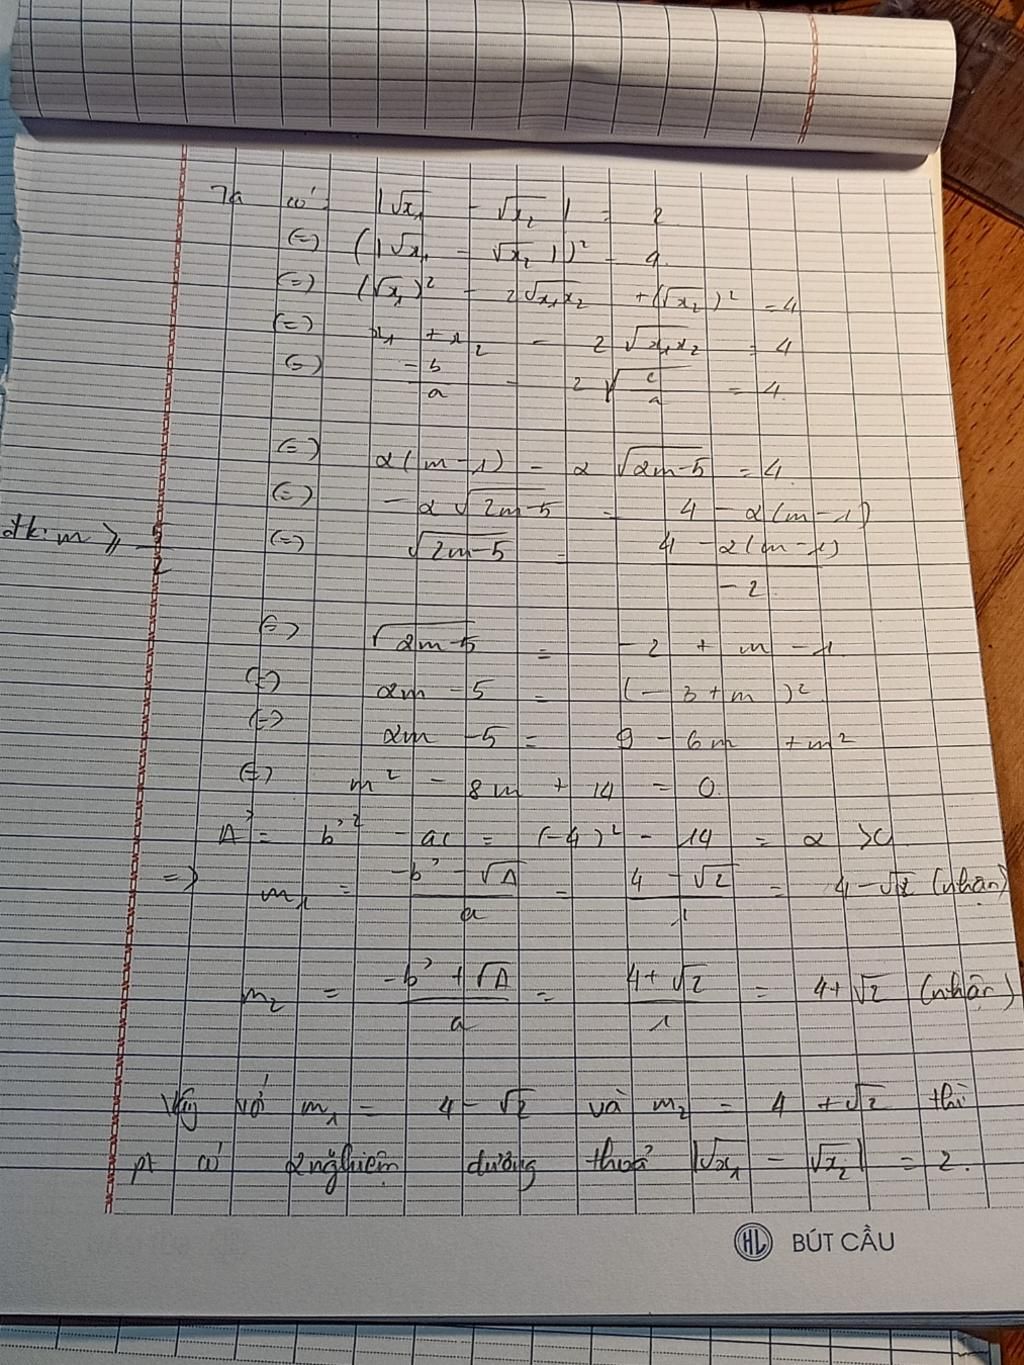 Ta có: |√x₁ - √x₂| = 2
(=) (|√x₁ - √x₂|)² = 4
(=) (√x₁)² - 2√x₁x₂ + (√x₂)² = 4
(=) x₁ + x₂ - 2√x₁x₂ = 4
(=) -b/a - 2√(c/a) = 4.
(=) 2(m-1) - 2√(2m-5) = 4
(=) -2√(2m-5) = 4 - 2(m-1)
đk: m ⩾ 5/2 (=) √(2m-5) = (4 - 2(m-1))/(-2)
(=) √(2m-5) = -2 + m - 1
(=) 2m - 5 = (-3+m)²
(=) 2m - 5 = 9 - 6m + m²
(=) m² - 8m + 14 = 0.
Δ' = b'² - ac = (-4)² - 14 = 2 > 0
=> m₁ = (-b' - √Δ)/a = (4 - √2)/1 = 4 - √2 (nhận)
m₂ = (-b' + √Δ)/a = (4 + √2)/1 = 4 + √2 (nhận)
Vậy với m₁ = 4 - √2 và m₂ = 4 + √2 thì
pt có 2 nghiệm dương thoả |√x₁ - √x₂| = 2.
HL BÚT CẦU